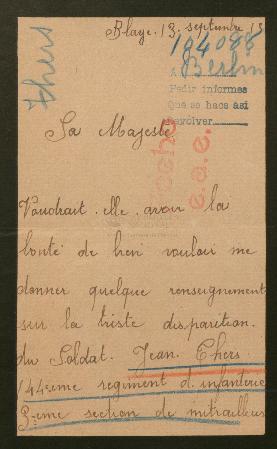 Blaye. 13. septembre
thers
194088
Berlin
A
Pedir informes
Que se haga asi
Devolver
Sa Majesté
e.a.e.
Voudrait. elle. avoir la
bonté de bien vouloir me
donner quelque renseignement
sur la triste disparition.
du Soldat. Jean. Thers
144eme regiment d'infanterie
3.eme section de mitrailleuse